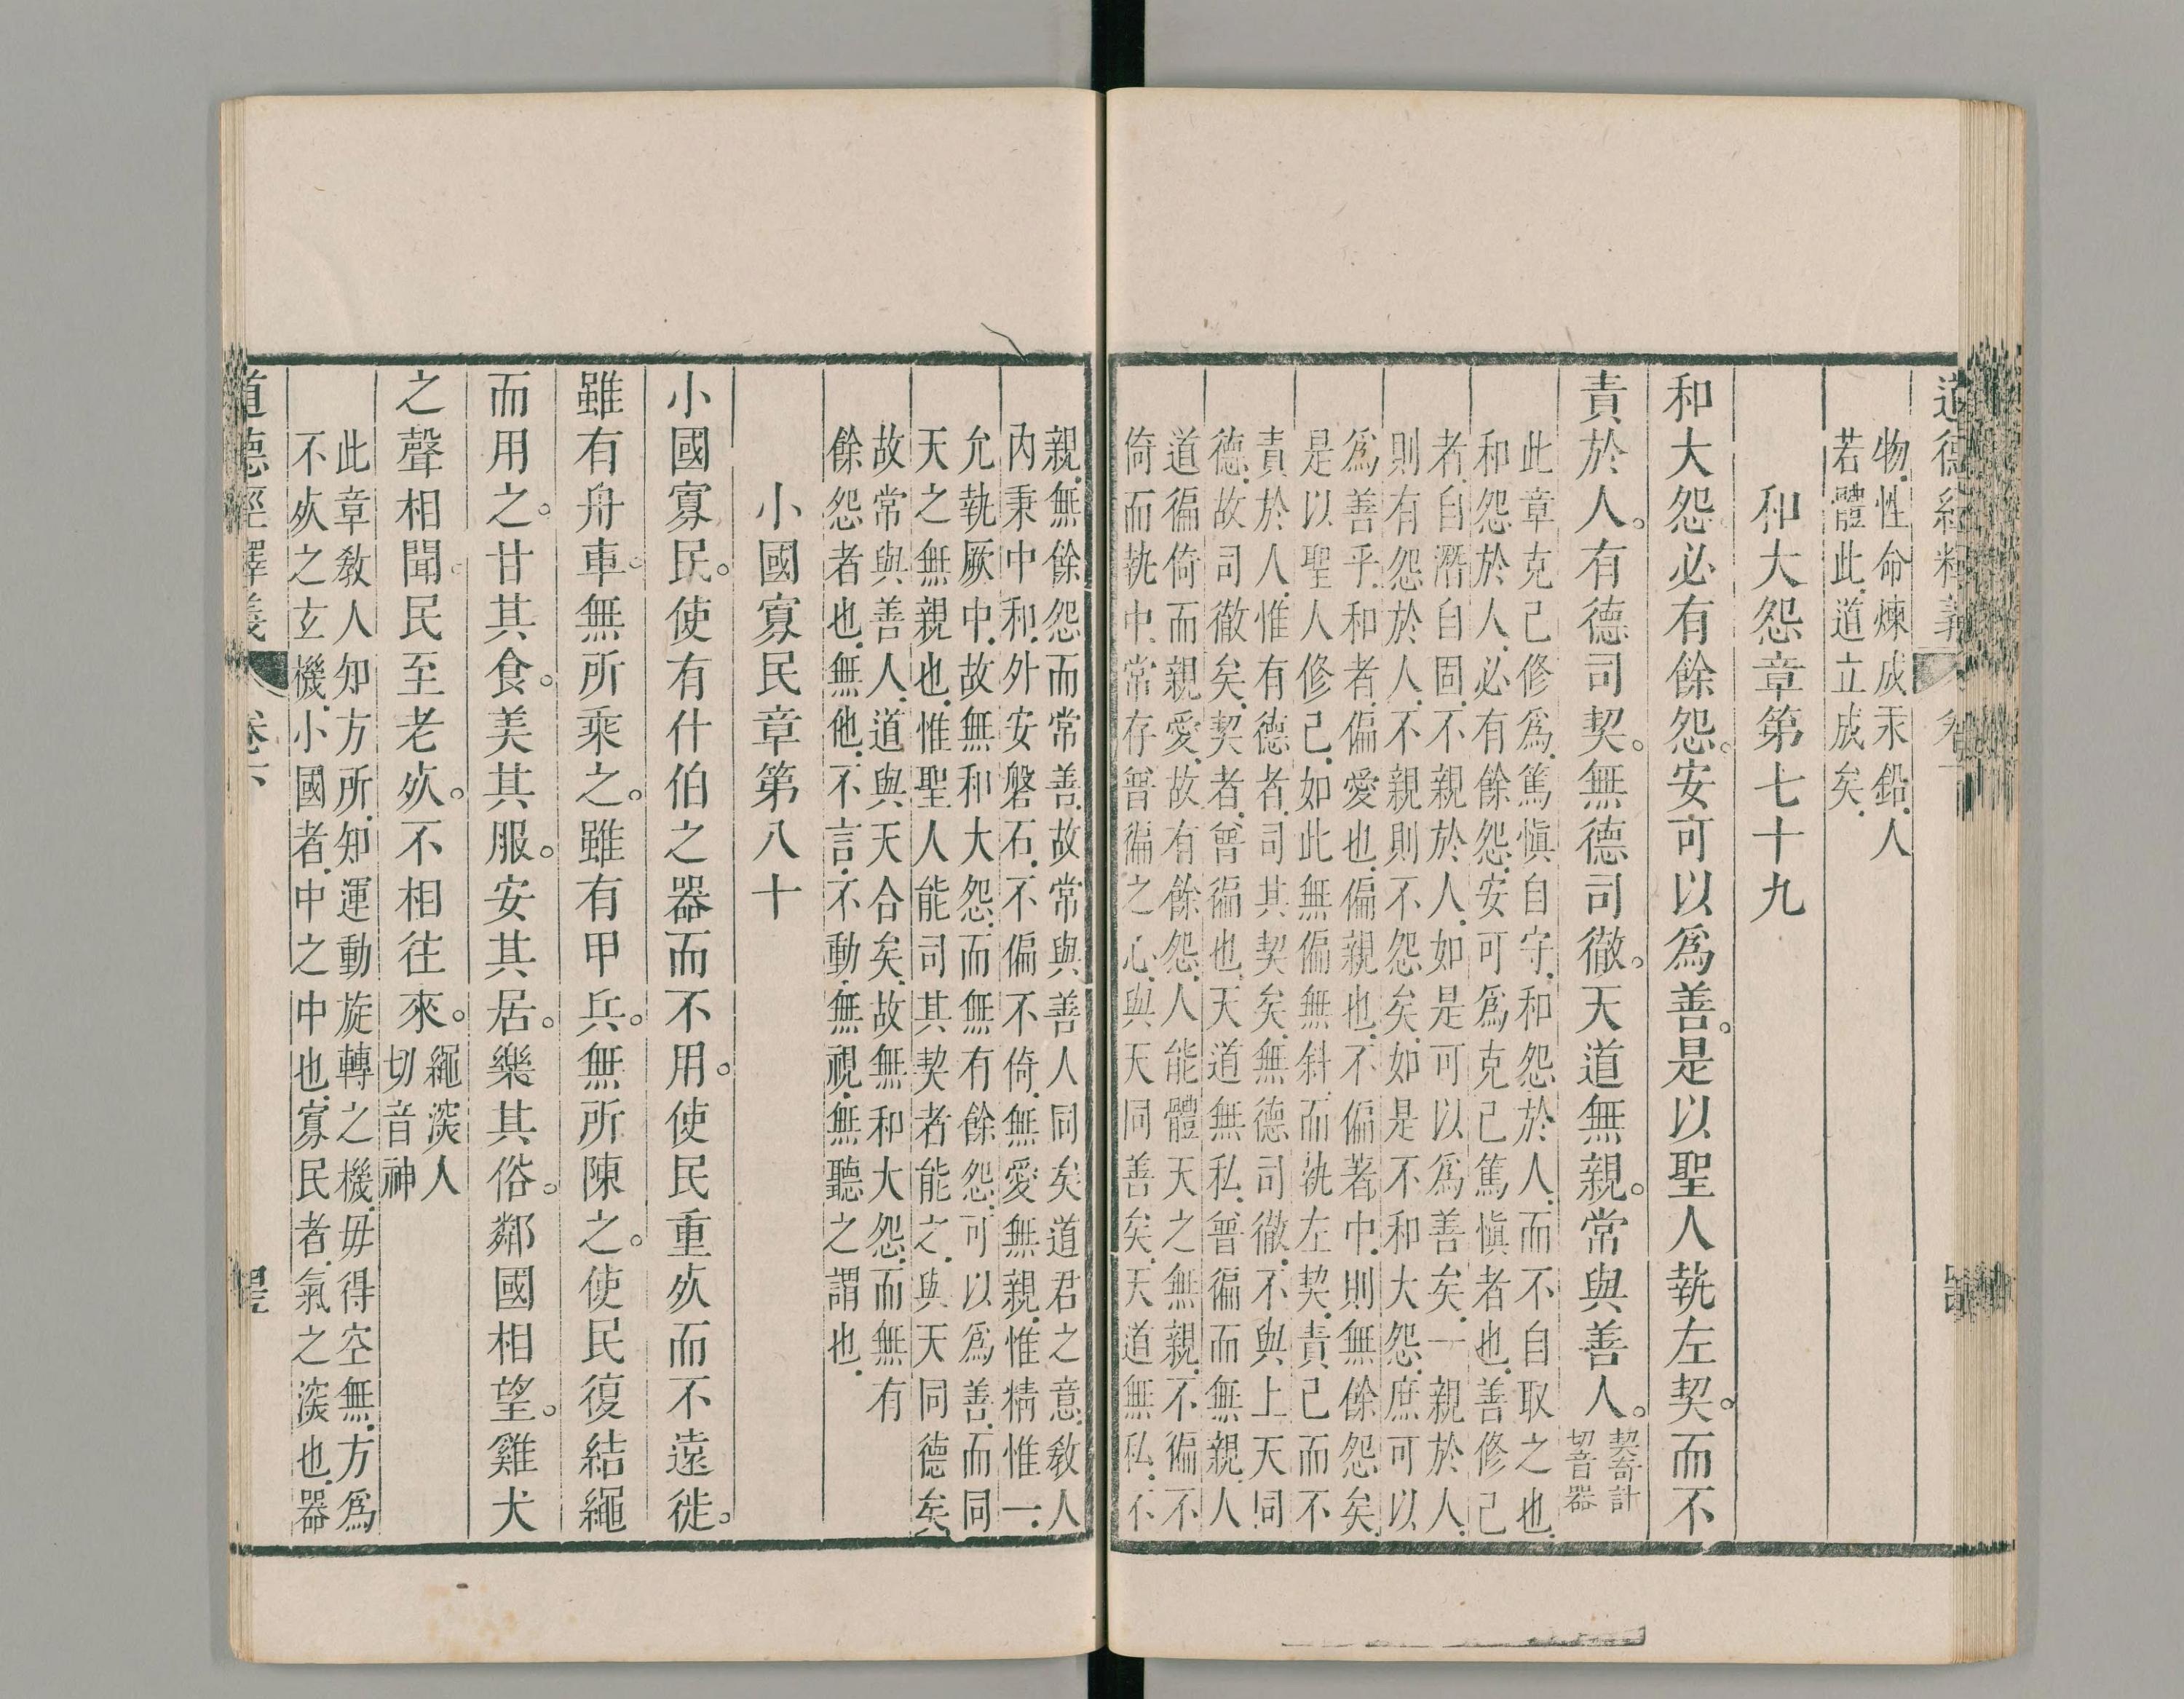 道德經釋義
物性命煉成汞鉛人
若體此道立成矣
和大怨章第七十九
和大怨必有餘怨安可以爲善是以聖人執左契而不
責於人有德司契無德司徹天道無親常與善人
契奇計
切音器
此章克己修爲篤愼自守和怨於人而不自取之也
和怨於人必有餘怨安可爲克己篤愼者也善修己
者自潛自固不親於人如是可以爲善矣一親於人
則有怨於人不親則不怨矣如是不和大怨庶可以
爲善乎和者偏愛也偏親也不偏著中則無餘怨矣
是以聖人修己如此無偏無斜而執左契責己而不
責於人惟有德者司其契矣無德司徹不與上天同
德故司徹矣契者曾徧也天道無私曾徧而無親人
道徧倚而親愛故有餘怨人能體天之無親不徧不
倚而執中常存曾徧之心與天同善矣天道無私不
親無餘怨而常善故常與善人同矣道君之意教人
內秉中和外安磐石不偏不倚無愛無親惟精惟一
允執厥中故無和大怨而無有餘怨可以爲善而同
天之無親也惟聖人能司其契者能之與天同德矣
故常與善人道與天合矣故無和大怨而無有
餘怨者也無他不言不動無視無聽之謂也
小國寡民章第八十
小國寡民使有什伯之器而不用使民重死而不遠徙
雖有舟車無所乘之雖有甲兵無所陳之使民復結繩
而用之甘其食美其服安其居樂其俗鄰國相望雞犬
之聲相聞民至老死不相往來
繩滐人
切音神
此章教人知方所知運動旋轉之機毋得空無方爲
不死之玄機小國者中之中也寡民者氣之滐也器
道德經釋義 卷下